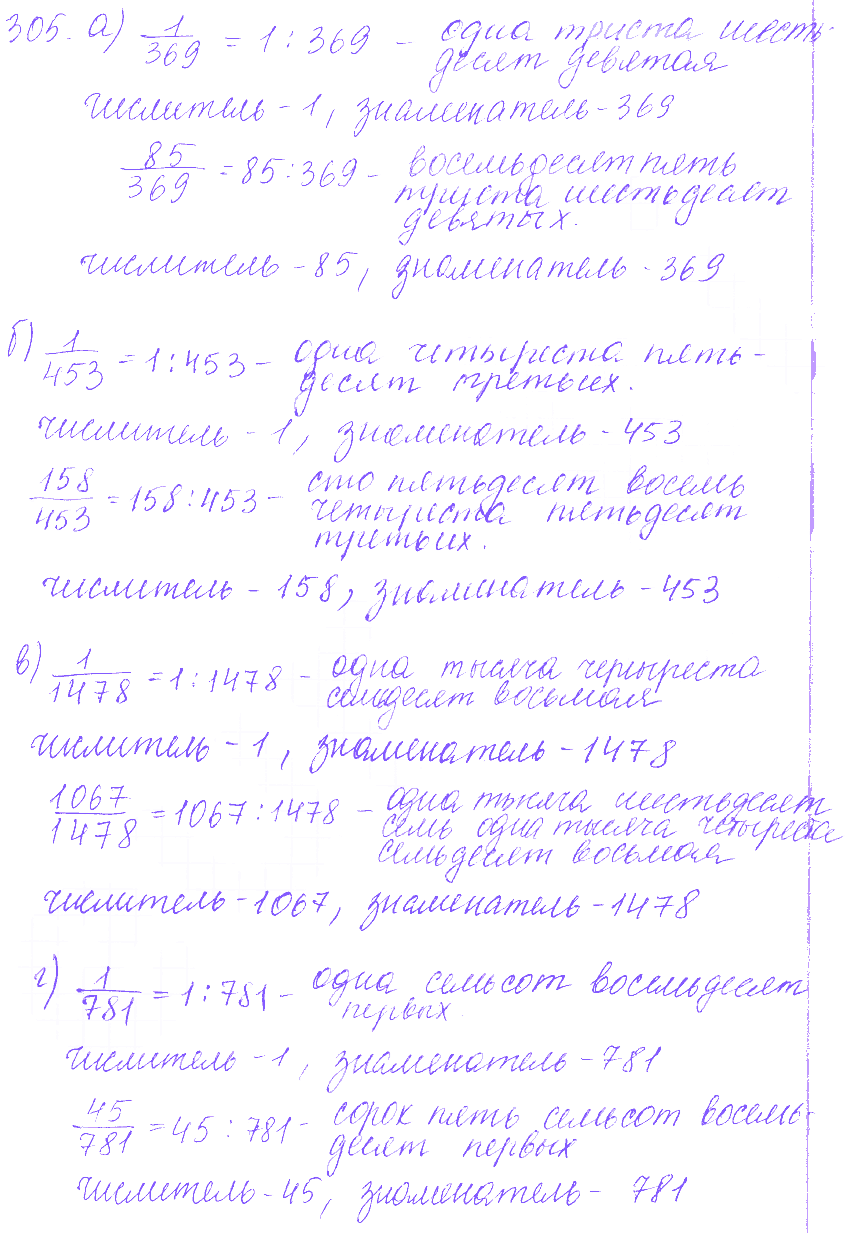 305. а) 1/369 = 1 : 369 – одна триста шесть-
десят девятая
числитель - 1, знаменатель - 369
85/369 = 85 : 369 - восемьдесят пять
триста шестьдесят
девятых.
числитель - 85, знаменатель - 369
б) 1/453 = 1 : 453 – одна четыриста пять-
десят третьих.
числитель - 1, знаменатель - 453
158/453 = 158 : 453 - сто пятьдесят восемь
четыриста пятьдесят
третьих.
числитель - 158, знаменатель - 453
в) 1/1478 = 1 : 1478 - одна тысяча четыреста
семьдесят восьмая
числитель - 1, знаменатель - 1478
1067/1478 = 1067 : 1478 – одна тысяча шестьдесят
семь одна тысяча четыреста
семьдесят восьмая
числитель - 1067, знаменатель - 1478
г) 1/781 = 1 : 781 – одна семьсот восемьдесят
первых
числитель - 1, знаменатель - 781
45/781 = 45 : 781 - сорок пять семьсот восемь-
десят первых
числитель - 45, знаменатель - 781